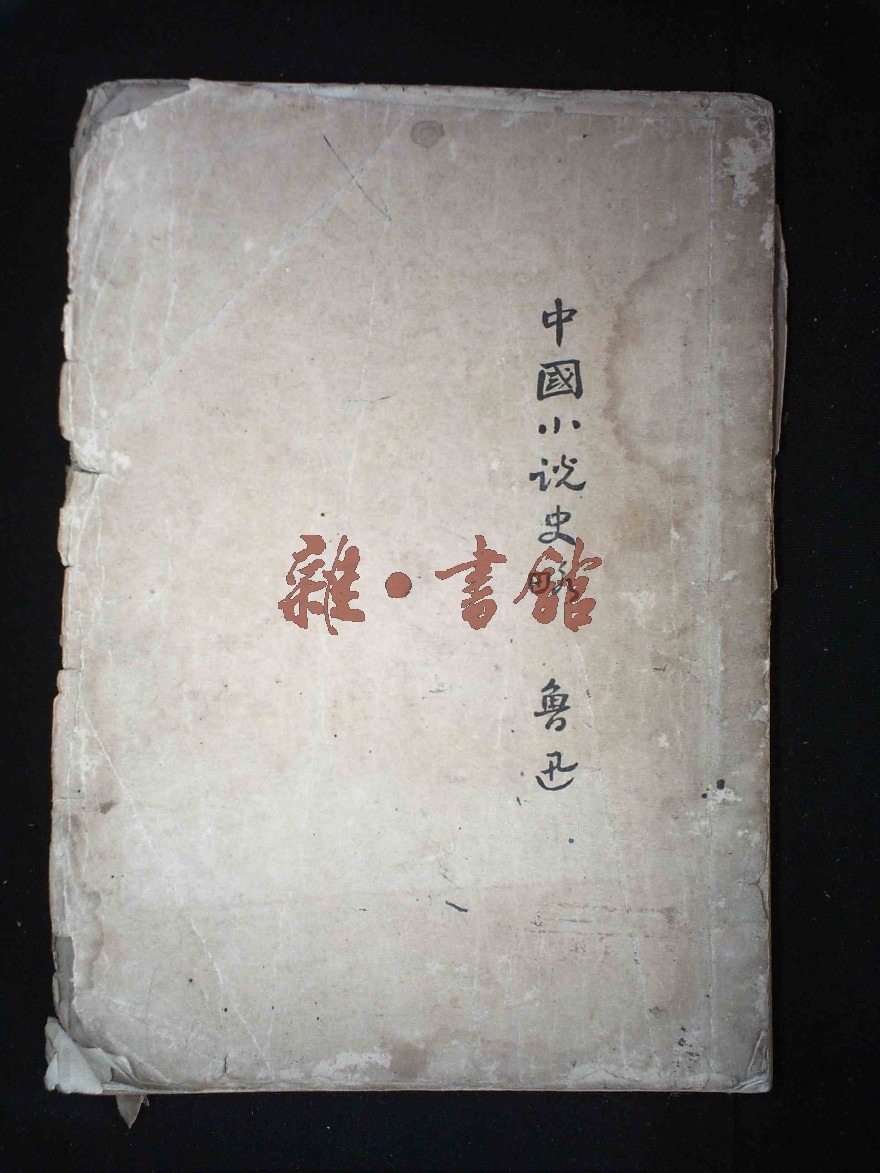 中國小说史略
鲁迅
雜·書館